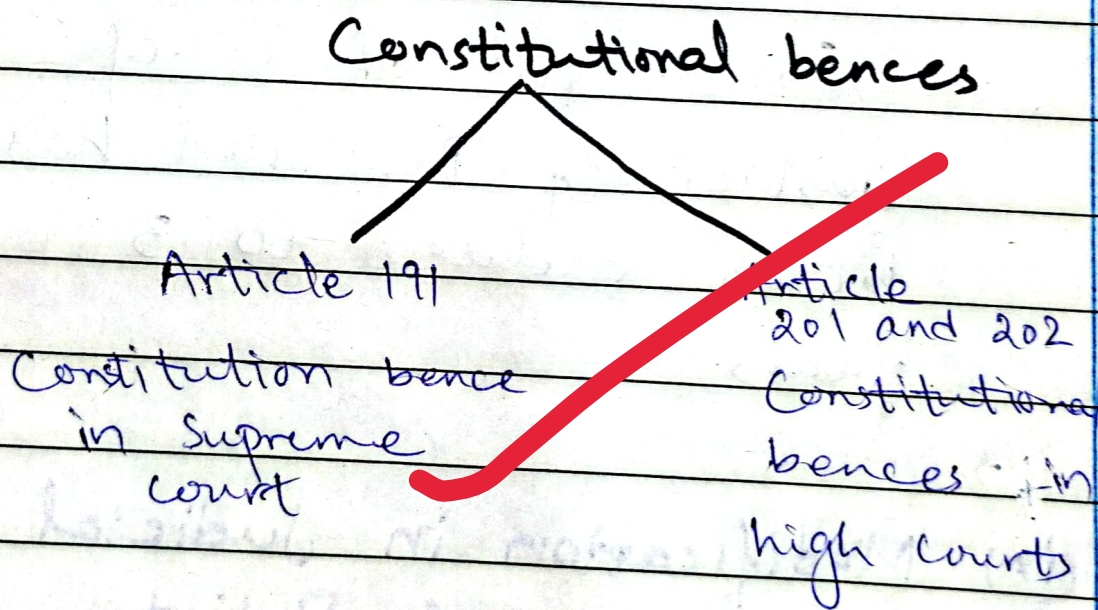 Constitutional bences
Article 191
Constitution bence
in Supreme
court
Article
201 and 202
Constitutiona
bences in
high courts